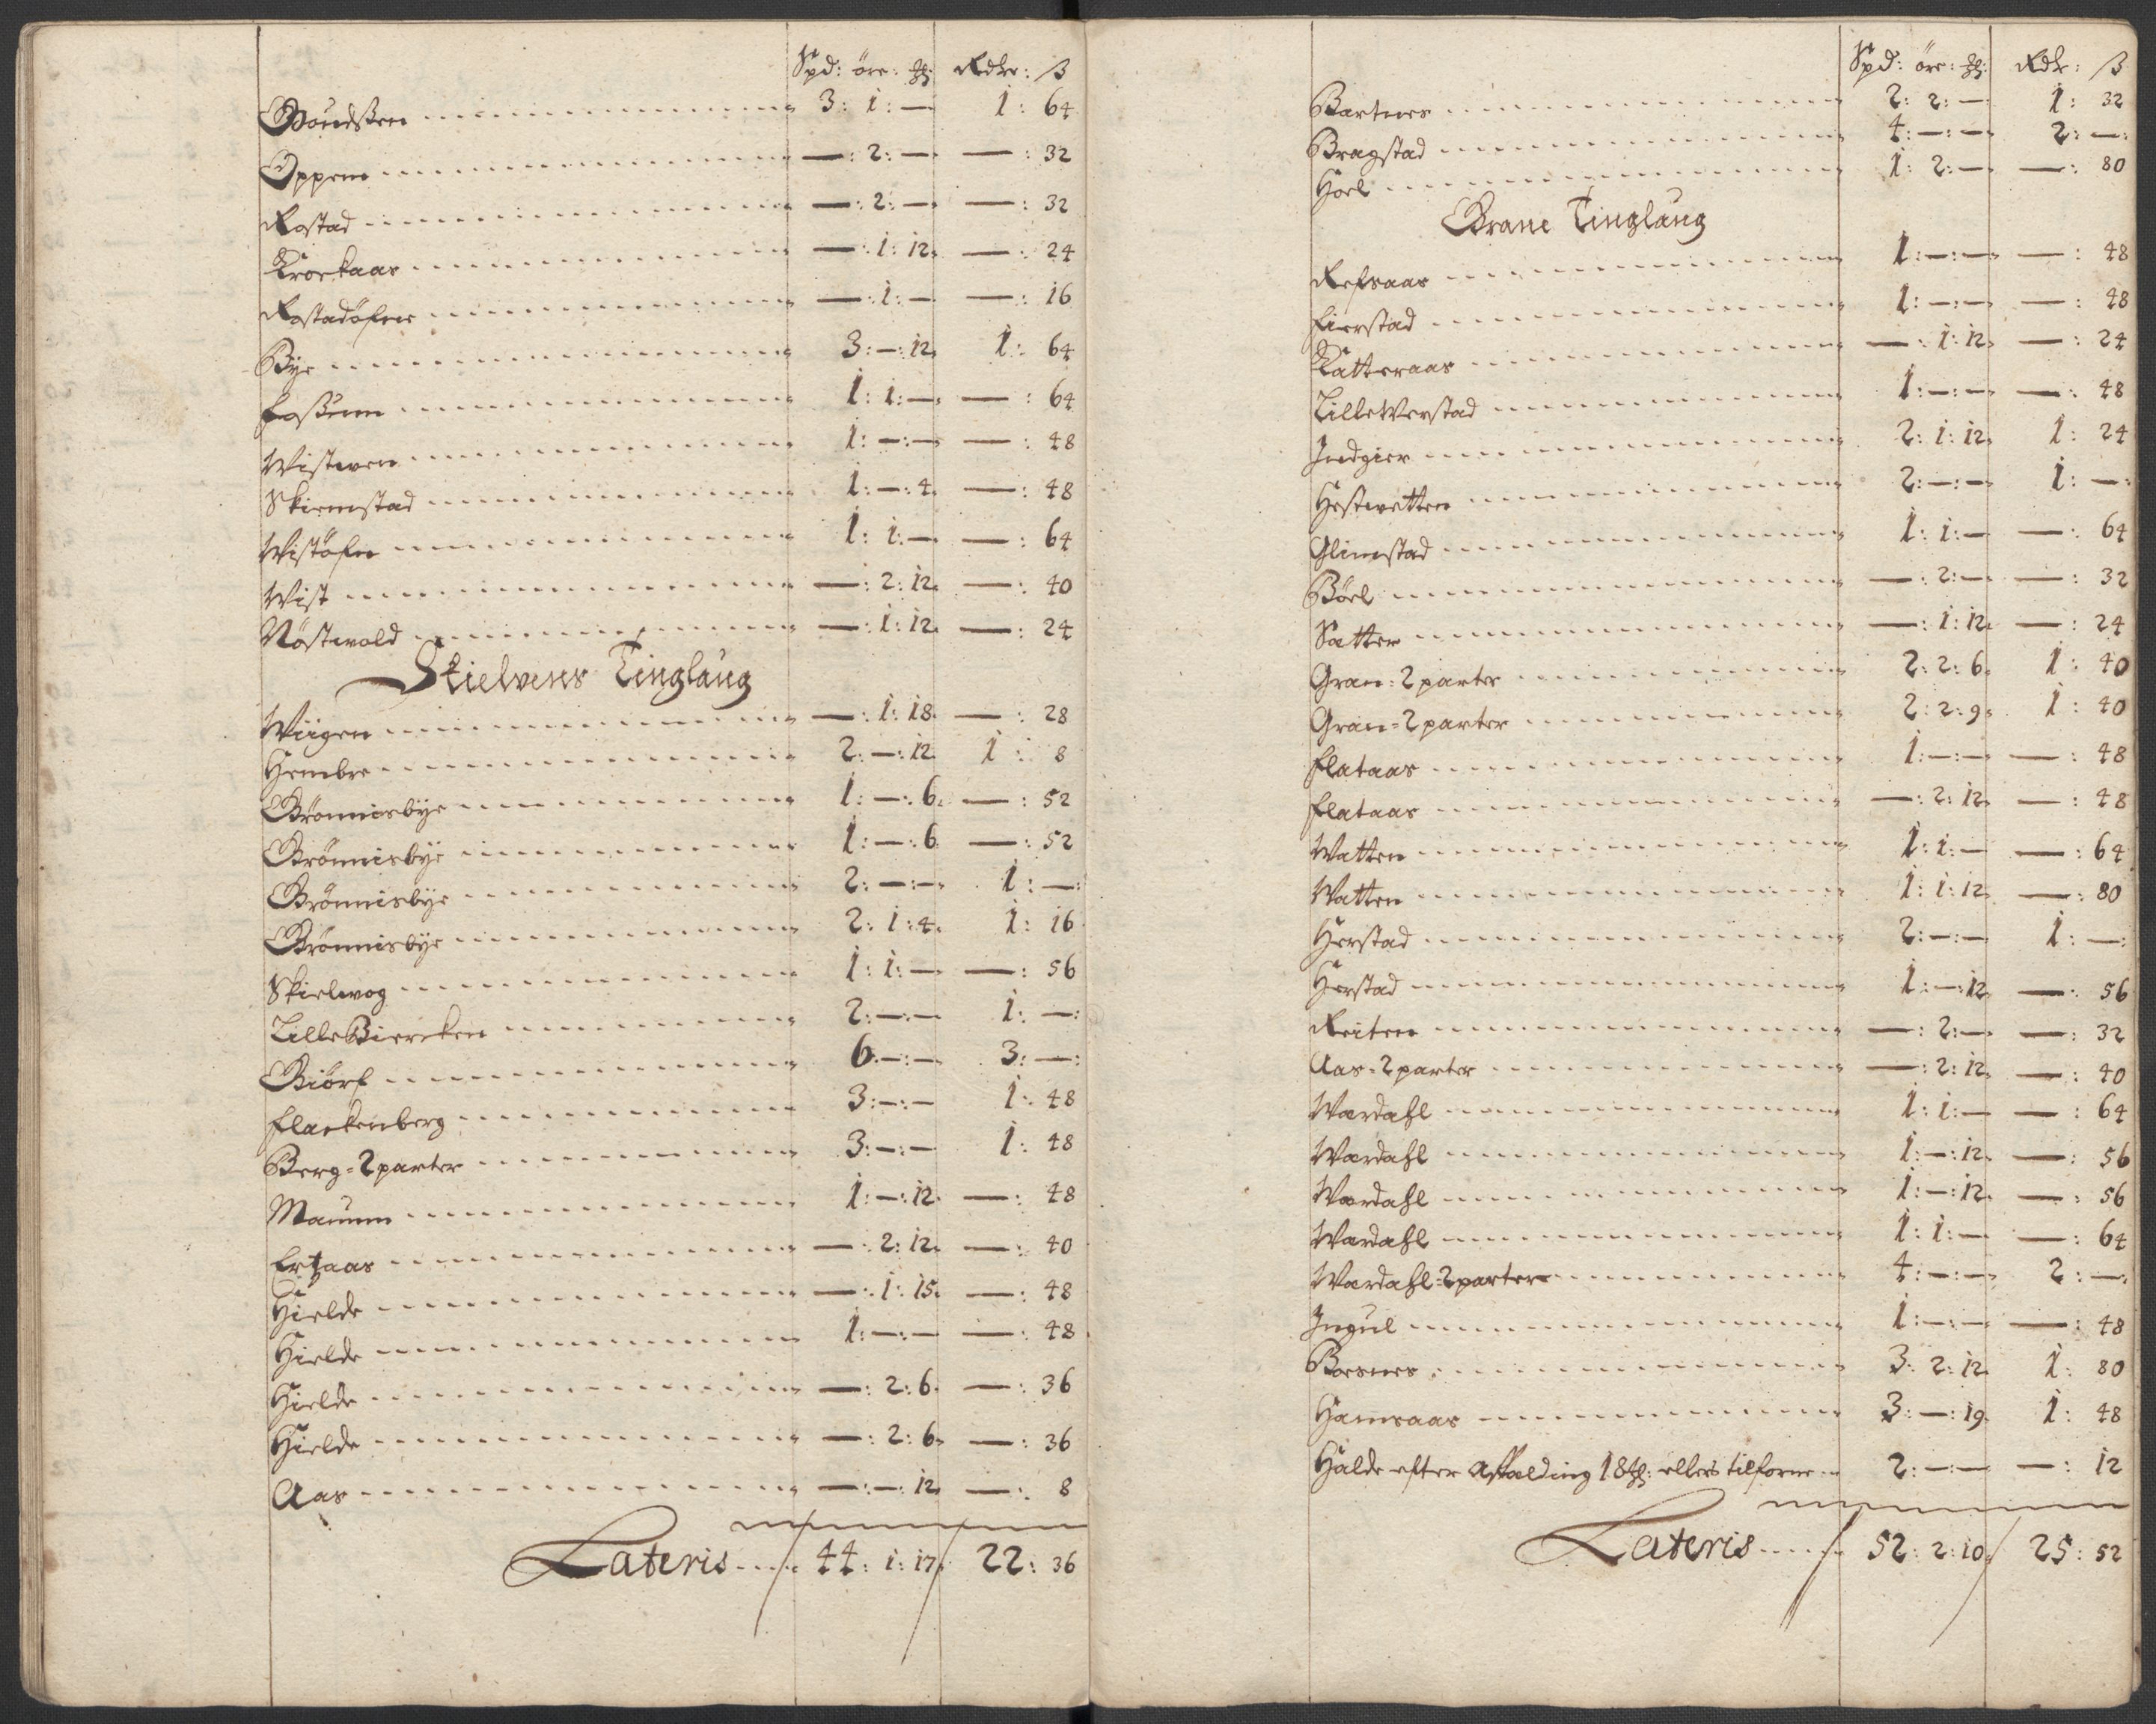 Spd: öre: Mk: Rdlr: ß
3: 1: — 1: 64
Oppem — : 2: — — : 32
Rostad — : 2: — — : 32
Krockaas — : 1: 12 — : 24
Rostadøfne — : 1: — — : 16
Bye 3: — : 12 1: 64
Fossum 1: 1: — — : 64
Wisteven 1: — : — — : 48
Skiemstad 1: — : 4 — : 48
Wistøfn 1: 1: — — : 64
Wist — : 2: 12 — : 40
Nøstevold — : 1: 12 — : 24
Skielvens Tinglaug
Wiigen — : 1: 18 — : 28
Hembre 2: — : 12 1: 8
Grønnisbye 1: — : 6 — : 52
Grønnisbye 1: — : 6 — : 52
Grønnisbye 2: — : — 1: —
Grønnisbye 2: 1: 4 1: 16
Skielvog 1: 1: — — : 56
Lille Biercken 2: — : — 1: —
Biörk 6: — : — 3: —
Flackenberg 3: — : — 1: 48
Berg = 2 parter 3: — : — 1: 48
Manum 1: — : 12 — : 48
Ertzaas — : 2: 12 — : 40
Hielde — : 1: 15 — : 48
Hielde 1: — : — — : 48
Hielde — : 2: 6 — : 36
Hielde — : 2: 6 — : 36
Aas — : — : 12 — : 8
Lateris 44: 1: 17 22: 36
Spd: öre: Mk: Rdlr: ß
Bartnes 2: 2: — 1: 32
Bragstad 4: — : — 2: —
Hoel 1: 2: — — : 80
Grane Tinglaug
Refsaas 1: — : — — : 48
Fierstad 1: — : — — : 48
Katteraas — : 1: 12 — : 24
Lille Werstad 1: — : — — : 48
Indgier 2: 1: 12 1: 24
Hestvetten 2: — : — 1: —
Glimstad 1: 1: — — : 64
Böel — : 2: — — : 32
Sætter — : 1: 12 — : 24
Gran = 2 parter 2: 2: 6 1: 40
Gran = 2 parter 2: 2: 9 1: 40
Flataas 1: — : — — : 48
Flataas — : 2: 12 — : 48
Watten 1: 1: — — : 64
Watten 1: 1: 12 — : 80
Herstad 2: — : — 1: —
Herstad 1: — : 12 — : 56
Reiten — : 2: — — : 32
Aas = 2 parter — : 2: 12 — : 40
Wardahl 1: 1: — — : 64
Wardahl 1: — : 12 — : 56
Wardahl 1: — : 12 — : 56
Wardahl 1: 1: — — : 64
Wardahl = 2 parter 4: — : — 2: —
Ingul 1: — : — — : 48
Bosnes 3: 2: 12 1: 80
Hamsaas 3: — : 19 1: 48
Halde efter Affælding 18 Mk: ellers tilforne 2: — : — — : 12
Lateris 52: 2: 10 25: 52